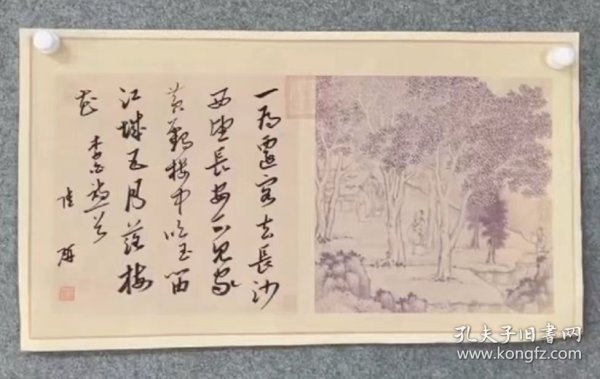 一为遷客去長沙
西望長安不见家
黄鹤楼中吹玉笛
江城五月落梅
花 李白诗
孔夫子旧书网
www.kongfz.com